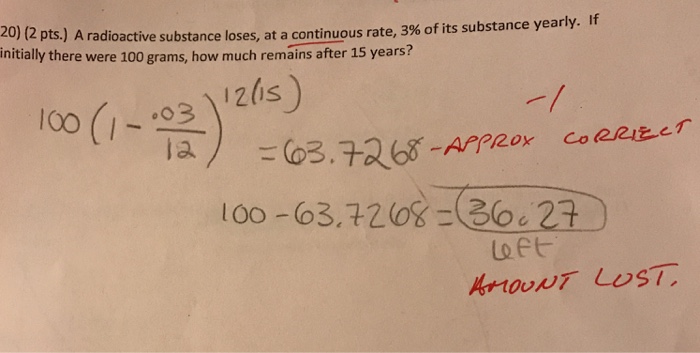 20) (2 pts.) A radioactive substance loses, at a continuous rate, 3% of its substance yearly. If
initially there were 100 grams, how much remains after 15 years?
100 (1 - .03/12)^12(15)
-1
= 63.7268 - APPROX CORRECT
100 - 63.7268 = 36.27
left
AMOUNT LOST.